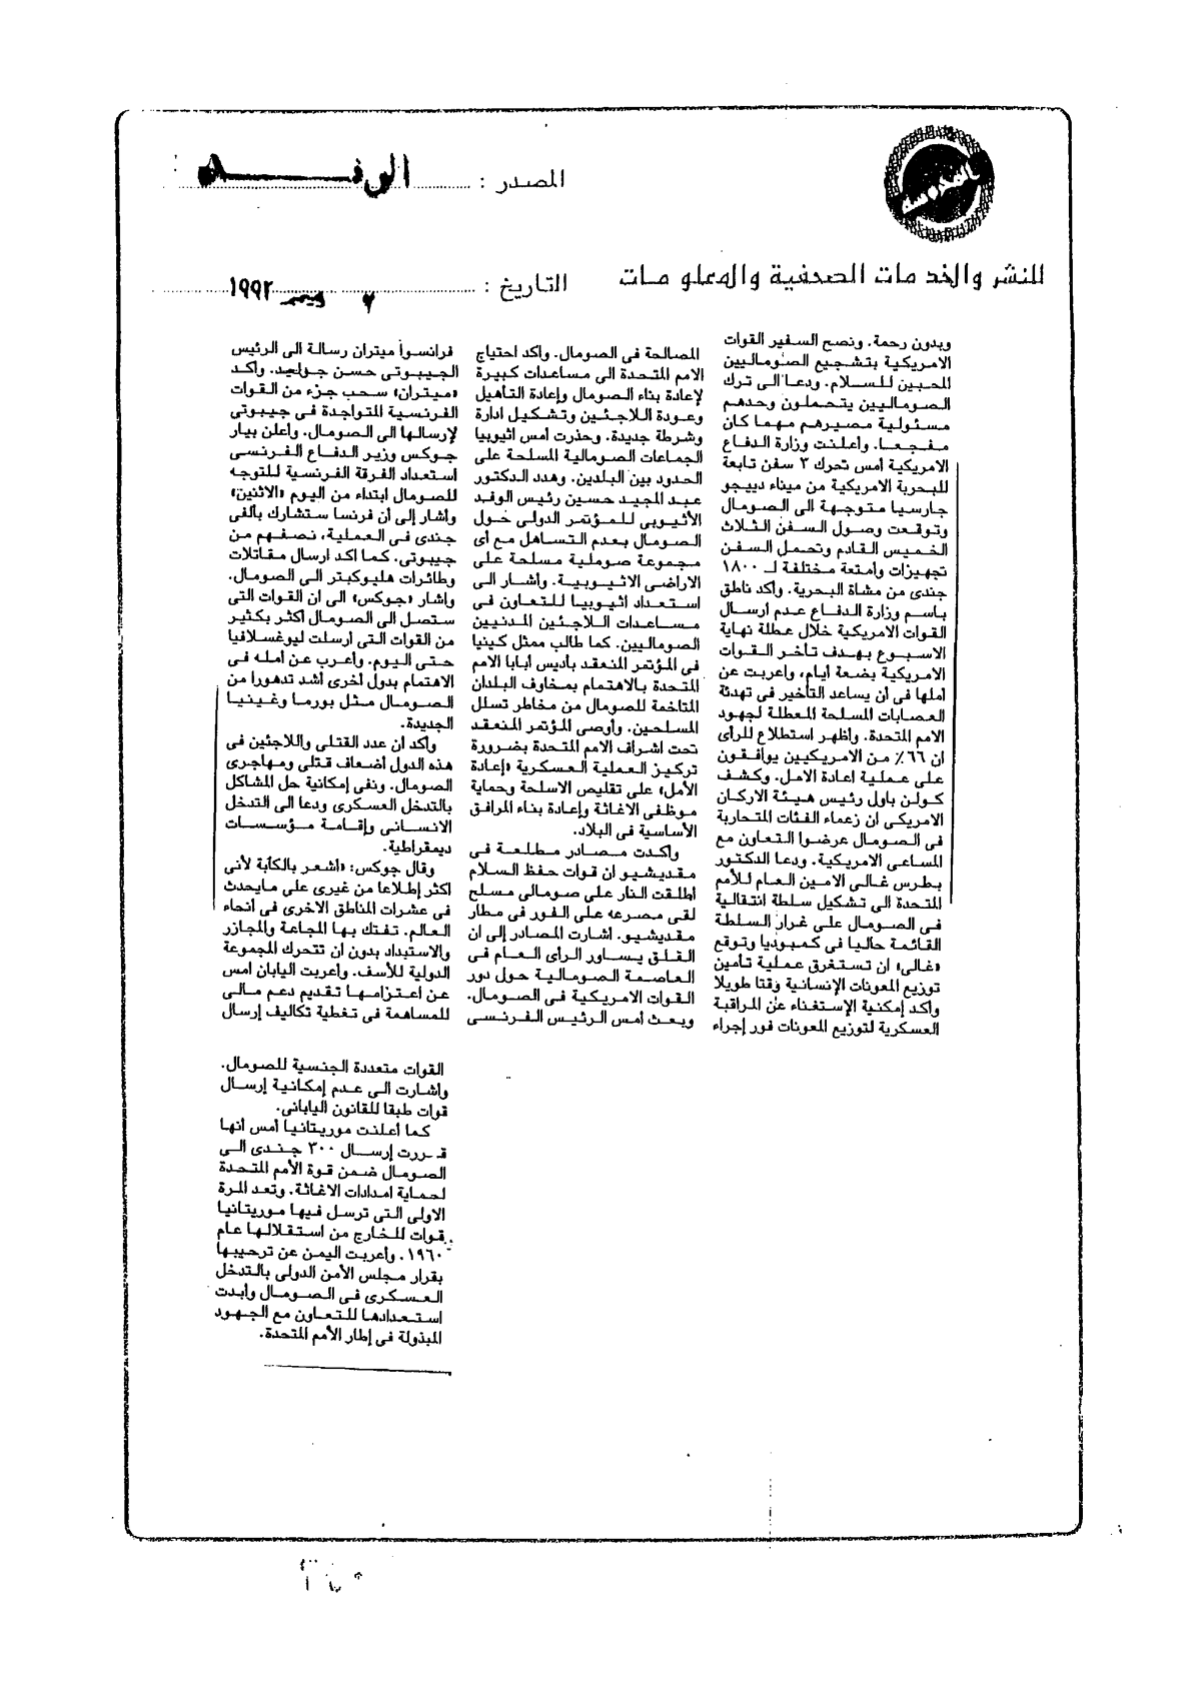 المصدر : الوفد
للنشر والخدمات الصحفية والمعلومات
التاريخ : ٧ ديسمبر ١٩٩٢
وبدون رحمة. ونصح السفير القوات
الامريكية بتشجيع الصوماليين
المحبين للسلام. ودعا الى ترك
الصوماليين يتحملون وحدهم
مسئولية مصيرهم مهما كان
مفجعا. وأعلنت وزارة الدفاع
الامريكية أمس تحرك ٣ سفن تابعة
للبحرية الامريكية من ميناء دييجو
جارسيا متوجهة الى الصومال
وتوقعت وصول السفن الثلاث
الخميس القادم وتحمل السفن
تجهيزات وأمتعة مختلفة لـ ١٨٠٠
جندى من مشاة البحرية. وأكد ناطق
باسم وزارة الدفاع عدم ارسال
القوات الامريكية خلال عطلة نهاية
الاسبوع بهدف تأخر القوات
الامريكية بضعة أيام، واعربت عن
أملها فى أن يساعد التأخير فى تهدئة
العصابات المسلحة المعطلة لجهود
الامم المتحدة. وأظهر استطلاع للرأى
ان ٦٦٪ من الامريكيين يوافقون
على عملية اعادة الامل. وكشف
كولن باول رئيس هيئة الاركان
الامريكى ان زعماء الفئات المتحاربة
فى الصومال عرضوا التعاون مع
المساعى الامريكية. ودعا الدكتور
بطرس غالى الامين العام للأمم
المتحدة الى تشكيل سلطة انتقالية
فى الصومال على غرار السلطة
القائمة حاليا فى كمبوديا وتوقع
«غالى» ان تستغرق عملية تأمين
توزيع المعونات الإنسانية وقتا طويلا
وأكد إمكنية الإستغناء عن المراقبة
العسكرية لتوزيع المعونات فور إجراء
المصالحة فى الصومال. وأكد احتياج
الامم المتحدة الى مساعدات كبيرة
لإعادة بناء الصومال وإعادة التأهيل
وعودة اللاجئين وتشكيل ادارة
وشرطة جديدة. وحذرت أمس اثيوبيا
الجماعات الصومالية المسلحة على
الحدود بين البلدين. وهدد الدكتور
عبد المجيد حسين رئيس الوفد
الأثيوبى للمؤتمر الدولى حول
الصومال بعدم التساهل مع أى
مجموعة صوملية مسلحة على
الاراضى الاثيوبية. وأشار الى
استعداد اثيوبيا للتعاون فى
مساعدات اللاجئين المدنيين
الصوماليين. كما طالب ممثل كينيا
فى المؤتمر المنعقد بأديس أبابا الامم
المتحدة بالاهتمام بمخاوف البلدان
المتاخمة للصومال من مخاطر تسلل
المسلحين. وأوصى المؤتمر المنعقد
تحت اشراف الامم المتحدة بضرورة
تركيز العملية العسكرية «إعادة
الأمل» على تقليص الاسلحة وحماية
موظفى الاغاثة وإعادة بناء المرافق
الأساسية فى البلاد.
وأكدت مصادر مطلعة فى
مقديشيو ان قوات حفظ السلام
أطلقت النار على صومالى مسلح
لقى مصرعه على الفور فى مطار
مقديشيو. أشارت المصادر إلى ان
القلق يساور الرأى العام فى
العاصمة الصومالية حول دور
القوات الامريكية فى الصومال.
وبعث أمس الرئيس الفرنسى
فرانسوا ميتران رسالة الى الرئيس
الجيبوتى حسن جوليد. وأكد
«ميتران» سحب جزء من القوات
الفرنسية المتواجدة فى جيبوتى
لإرسالها الى الصومال. وأعلن بيار
جوكس وزير الدفاع الفرنسى
استعداد الفرقة الفرنسية للتوجه
للصومال ابتداء من اليوم «الاثنين»
وأشار إلى أن فرنسا ستشارك بألفى
جندى فى العملية، نصفهم من
جيبوتى. كما اكد ارسال مقاتلات
وطائرات هليوكبتر الى الصومال.
وأشار «جوكس» الى ان القوات التى
ستصل الى الصومال أكثر بكثير
من القوات التى ارسلت ليوغسلافيا
حتى اليوم. وأعرب عن أمله فى
الاهتمام بدول أخرى أشد تدهورا من
الصومال مثل بورما وغينيا
الجديدة.
وأكد ان عدد القتلى واللاجئين فى
هذه الدول أضعاف قتلى ومهاجرى
الصومال. ونفى إمكانية حل المشاكل
بالتدخل العسكرى ودعا الى التدخل
الانسانى وإقامة مؤسسات
ديمقراطية.
وقال جوكس: «أشعر بالكآبة لأنى
اكثر إطلاعا من غيرى على مايحدث
فى عشرات المناطق الاخرى فى أنحاء
العالم. تفتك بها المجاعة والمجازر
والاستبداد بدون ان تتحرك المجموعة
الدولية للأسف. وأعربت اليابان امس
عن اعتزامها تقديم دعم مالى
للمساهمة فى تغطية تكاليف إرسال
القوات متعددة الجنسية للصومال.
وأشارت الى عدم إمكانية إرسال
قوات طبقا للقانون اليابانى.
كما أعلنت موريتانيا أمس أنها
قررت إرسال ٣٠٠ جندى الى
الصومال ضمن قوة الأمم المتحدة
لحماية امدادات الاغاثة. وتعد المرة
الاولى التى ترسل فيها موريتانيا
قوات للخارج من استقلالها عام
١٩٦٠. وأعربت اليمن عن ترحيبها
بقرار مجلس الأمن الدولى بالتدخل
العسكرى فى الصومال وأبدت
استعدادها للتعاون مع الجهود
المبذولة فى إطار الأمم المتحدة.